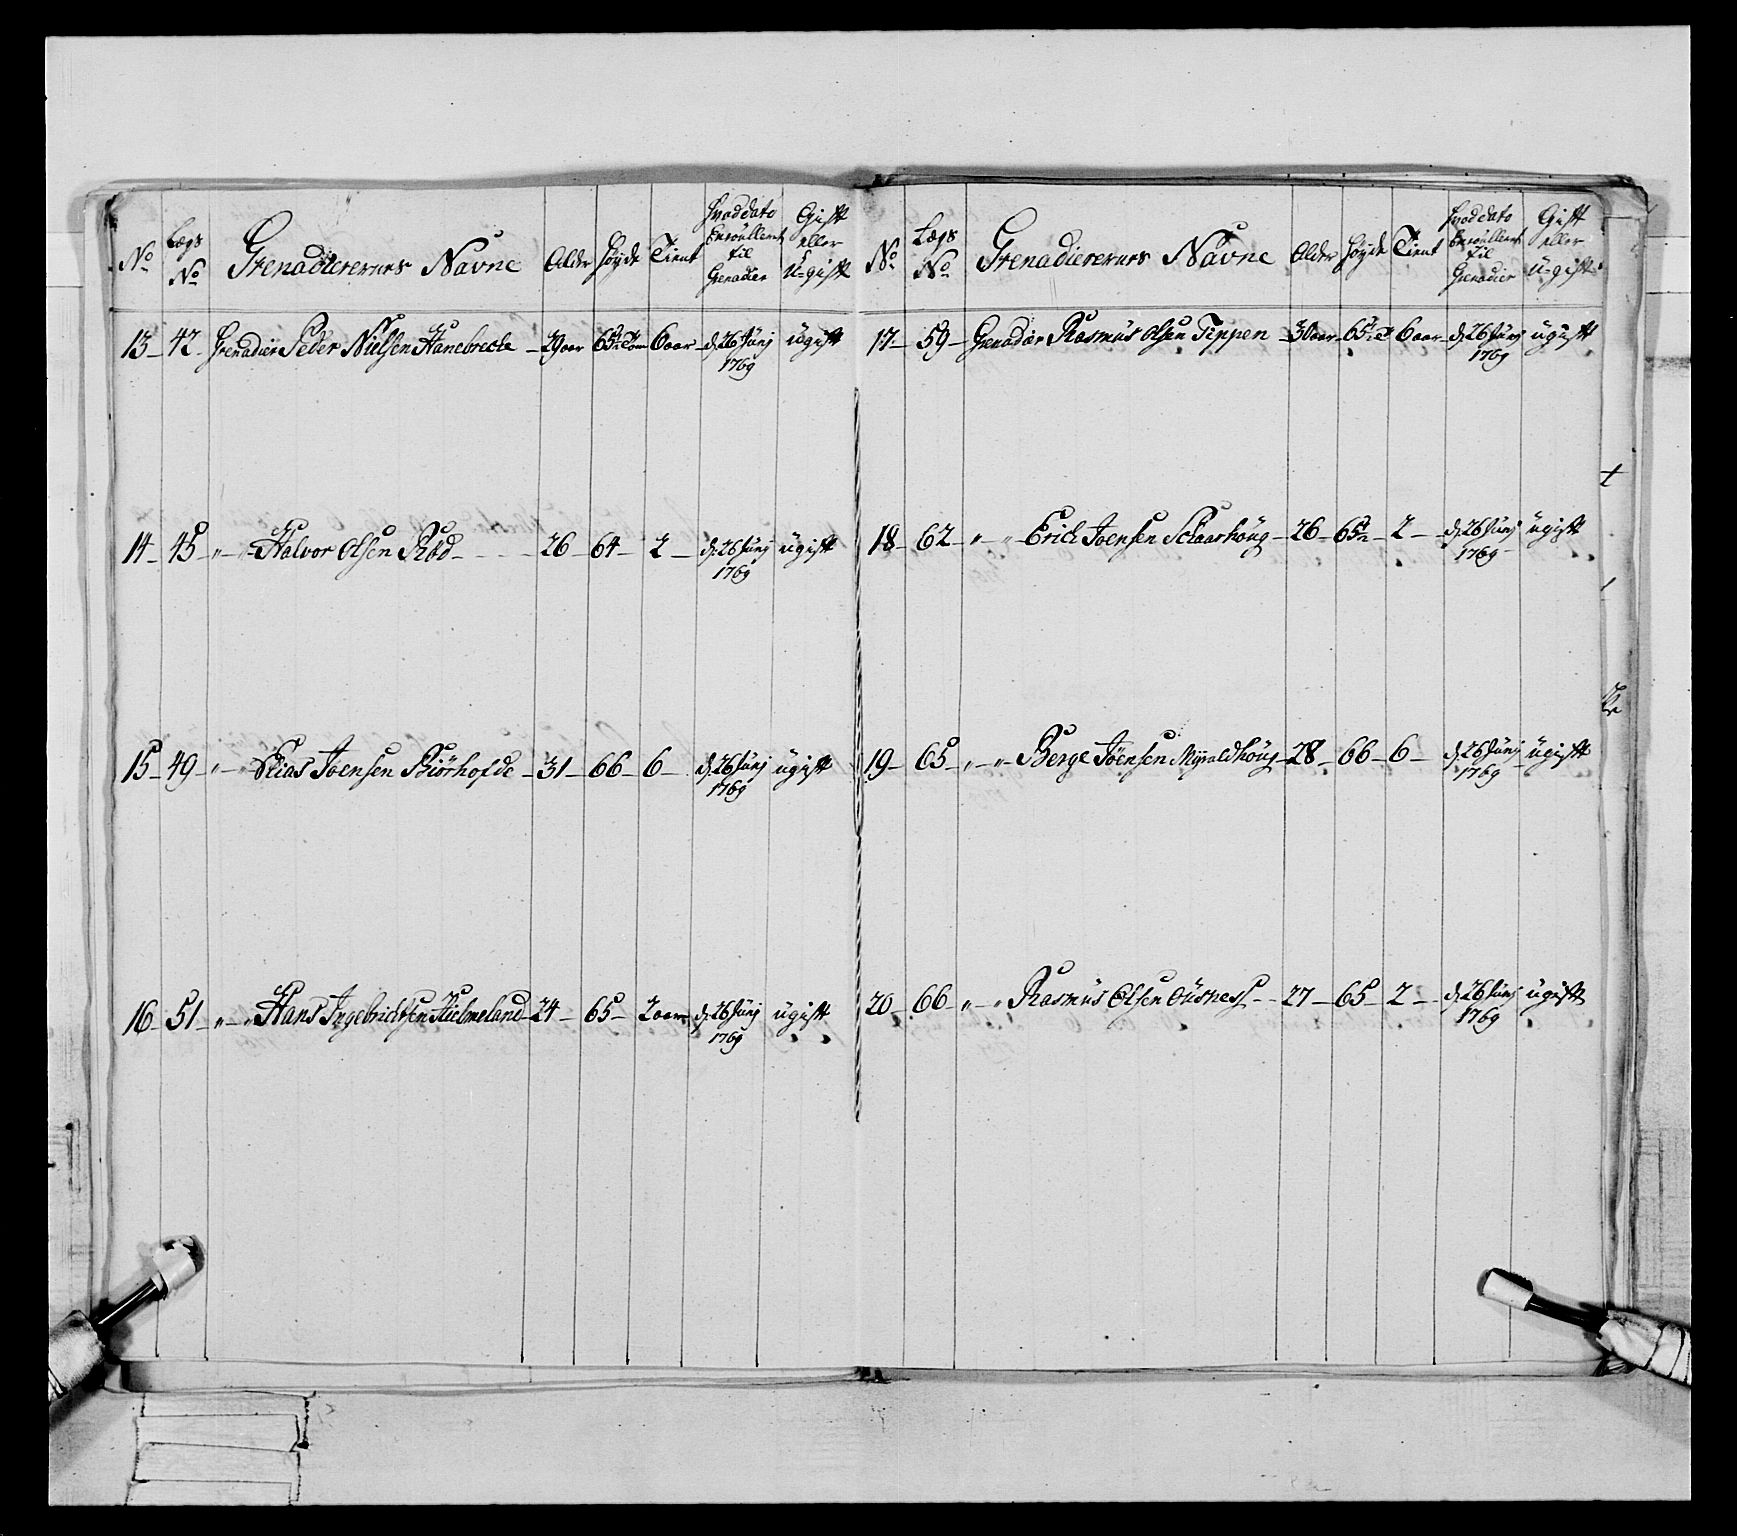 No Lægs No Grenadierernes Navne Alder Høyde Tient Hvad dato Enroulleret til Grenadeer Gift eller U-gift
13 42 Grenadeer Peder Nielsen Hanebrecke 29 aar 65 1/2 Tom 6 aar d. 26 Junj 1769 ugift
14 45 " — " Halvor Olsen Rød 26 64 2 d. 26 Junj 1769 ugift
15 49 " — " Elias Joensen Biørhofde 31 66 6 d. 26 Junj 1769 ugift
16 51 " — " Hans Ingebrichtsen Hielmeland 24 65 2 aar d. 26 Junj 1769 ugift
No Lægs No Grenadierernes Navne Alder Høyde Tient Hvad dato Enroulleret til Grenadier Gift eller U-gift
17 59 Grenadeer Rasmus Olsen Teppen 30 aar 65 1/2 T 6 aar d. 26 Junj 1769 ugift
18 62 " " Erick Joensen Schaarhoug 26 65 1/2 2 d. 26 Junj 1769 ugift
19 65 " — " Berge Joensen Myrvoldhoug 28 66 6 d. 26 Junj 1769 ugift
20 66 " — " Rasmus Olsen Ousness 27 65 2 d. 26 Junj 1769 ugift